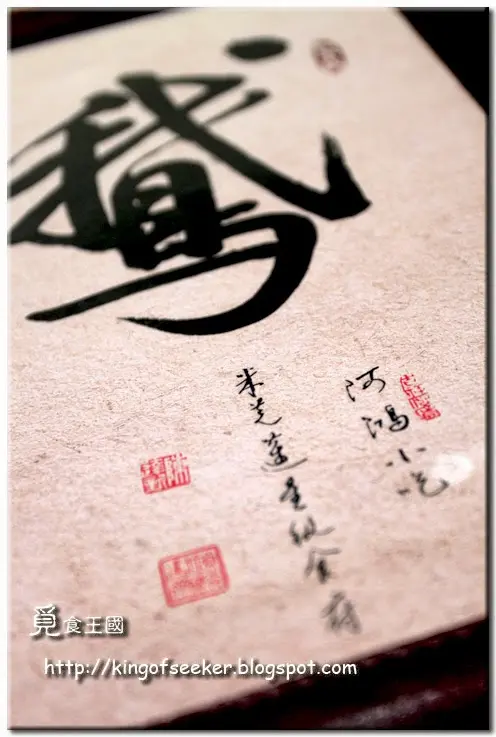 鵝
阿鴻小吃
米芝蓮星級食府
覓食王國
http://kingofseeker.blogspot.com